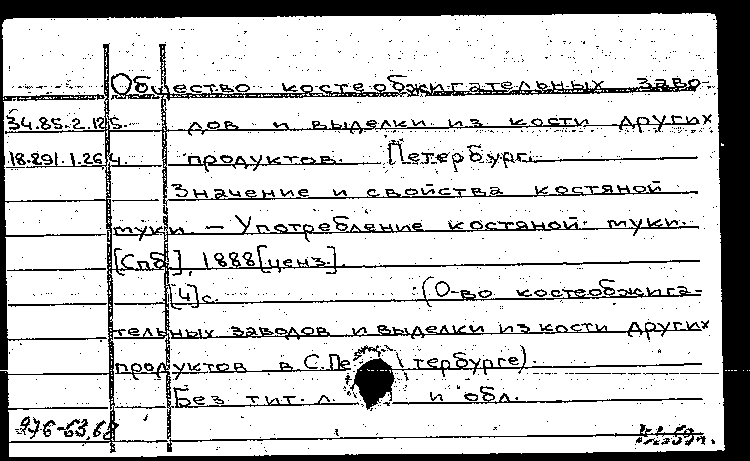 Общество костеобжигательных заво-
34.85.2.125. дов и выделки из кости других
18.291.1.264. продуктов. Петербург.
Значение и свойства костяной
муки. – Употребление костяной муки.
[Спб], 1888 [ценз.].
[4] с. (О-во костеобжига-
тельных заводов и выделки из кости других
продуктов в С.Пе тербурге).
Без тит. л. и обл.
276-63,68